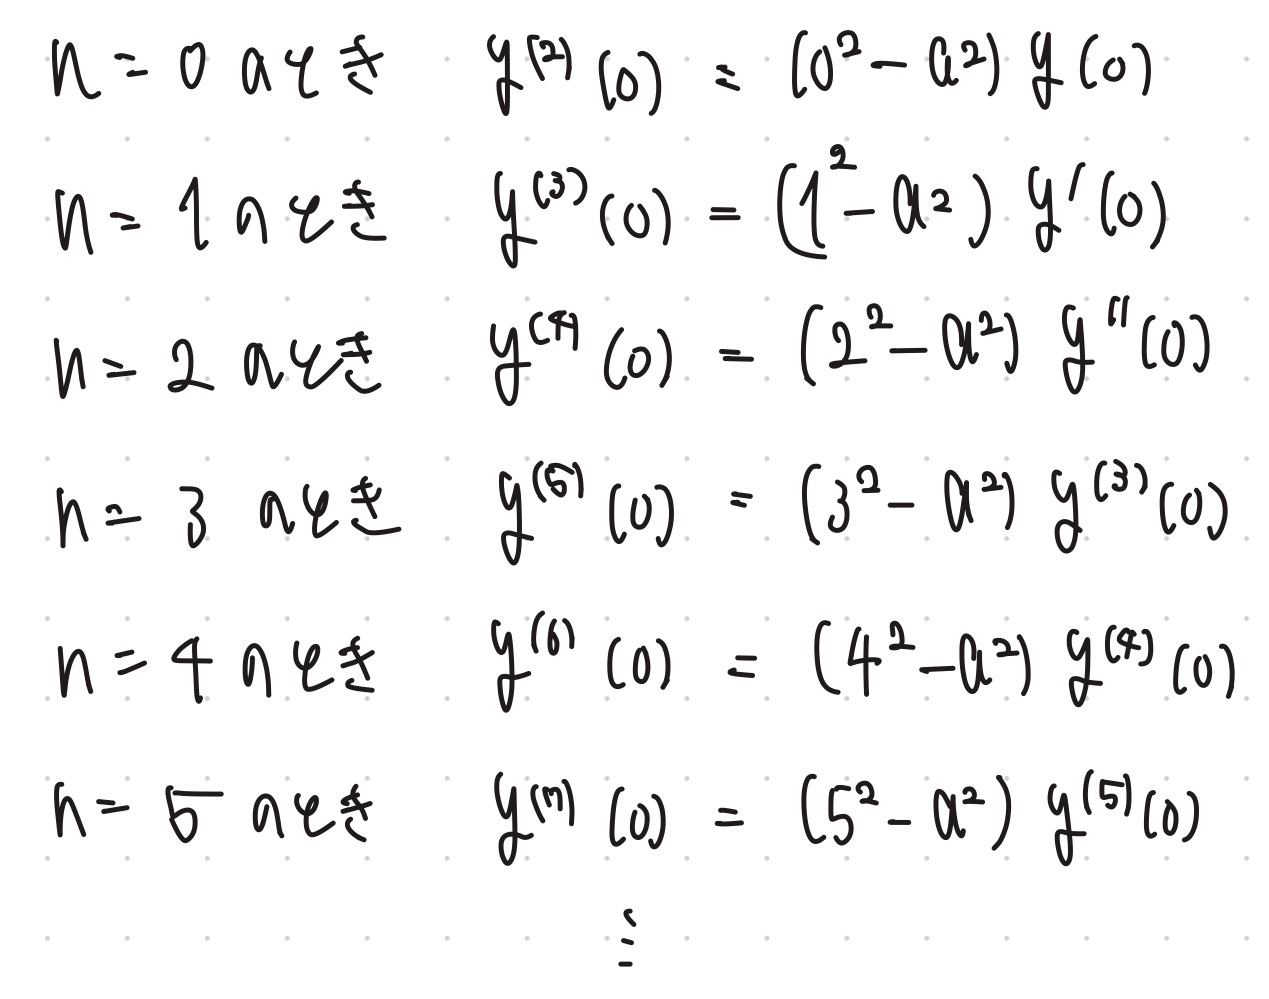 n = 0 のとき y^(2)(0) = (0² - a²) y(0)
n = 1 のとき y^(3)(0) = (1² - a²) y'(0)
n = 2 のとき y^(4)(0) = (2² - a²) y''(0)
n = 3 のとき y^(5)(0) = (3² - a²) y^(3)(0)
n = 4 のとき y^(6)(0) = (4² - a²) y^(4)(0)
n = 5 のとき y^(7)(0) = (5² - a²) y^(5)(0)
⋮